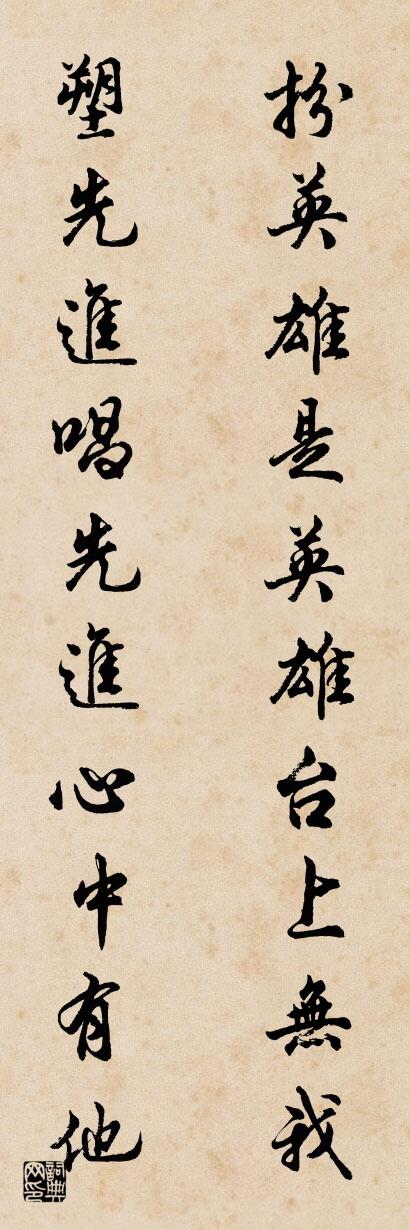 扮英雄是英雄台上無我
塑先進唱先進心中有他
詞典网印